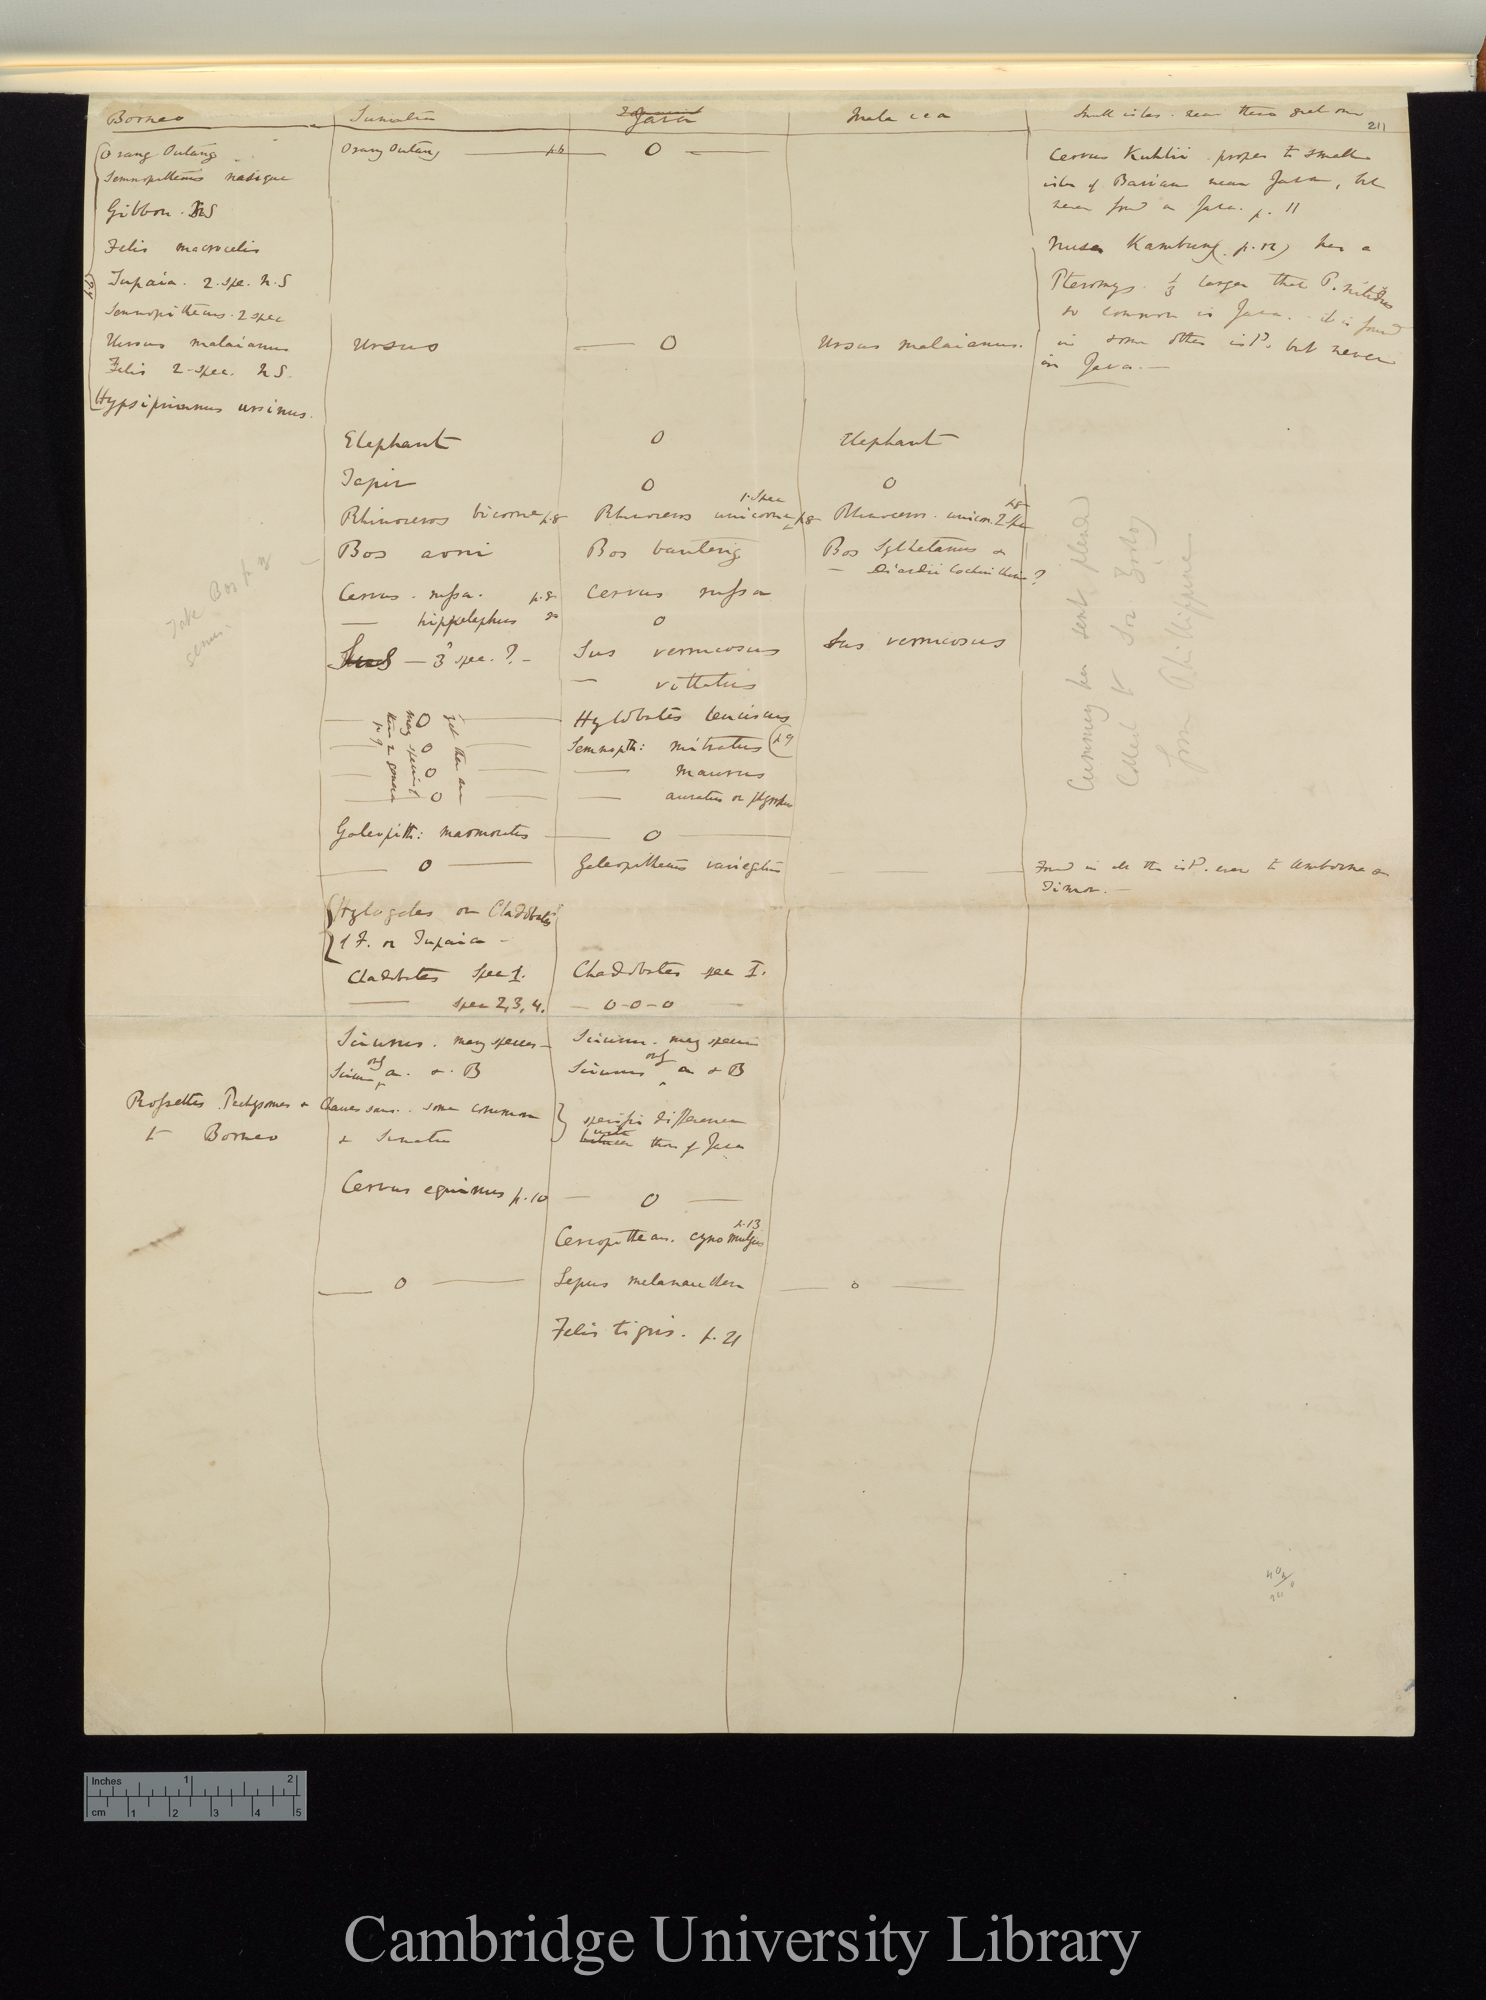 Borneo Sumatra Java Malacca Small isles near these great one
211
Orang Outang Orang Outang — p6 — 0 — Cervus Kuhlii proper to small
Semnopithecus nasique isles of Barian near Java, but
Gibbon. N S never found in Java. p. 11
Felis macrocelis Nusa Kambung (p. 12) has a
Tupaia. 2. spe. N. S Pteromys 1/3 larger that P. nitidus
Semnopithecus. 2 spec so common in Java. - it is found
Ursus malaianus Ursus — 0 Ursus malaianus. in some other isld. but never
Felis 2. spec. N S. in Java. —
Hypsiprimnus ursinus.
Elephant 0 Elephant
Tapir 0 0
Rhinoceros bicorne p. 8 Rhinoceros unicorne 1. spec p8 Rhinoceros. unicor. 2 spe p8
Bos arni Bos banteng Bos Sylhetanus or
— Diardii Cochin China?
Cervus. russa. p. 8 Cervus russa
— hippelephus 0
Sus — 3 spec. ? — Sus verrucosus Sus verrucosus
— vittatus
Take Bos p. 8
0 Hylobates leuciscus
0 Semnopith: mitratus (p 9
0 — maurus
0 — auratus or
yet there are
may species of
these 2 genera
p. 9
Galeopith: marmoratus — 0 —
— 0 — Galeopithecus variegatus — — Found in all the isld. even to Amboina &
Timor. —
Hylogales or Cladobates
1 F. or Tupaia —
Cladobates spec 1. Cladobates spec I.
— spec 2, 3, 4. — 0-0-0 —
Sciurus. many species — Sciurus. many specie
Sciurus a. & B Sciurus a & B
Roussettes Pachysomes & some common } specific difference
to Borneo & Sumatra between with those of Java
Cervus equinus p. 10 — 0 —
Cercopithecus. cynomolgus p. 13
— 0 — Lepus melanauchen — 0 —
Felis tigris. p. 21
Cumming has sent splendid
Collect to for Zoolog
from Phillippine
Inches 1 2
cm 1 2 3 4 5
Cambridge University Library